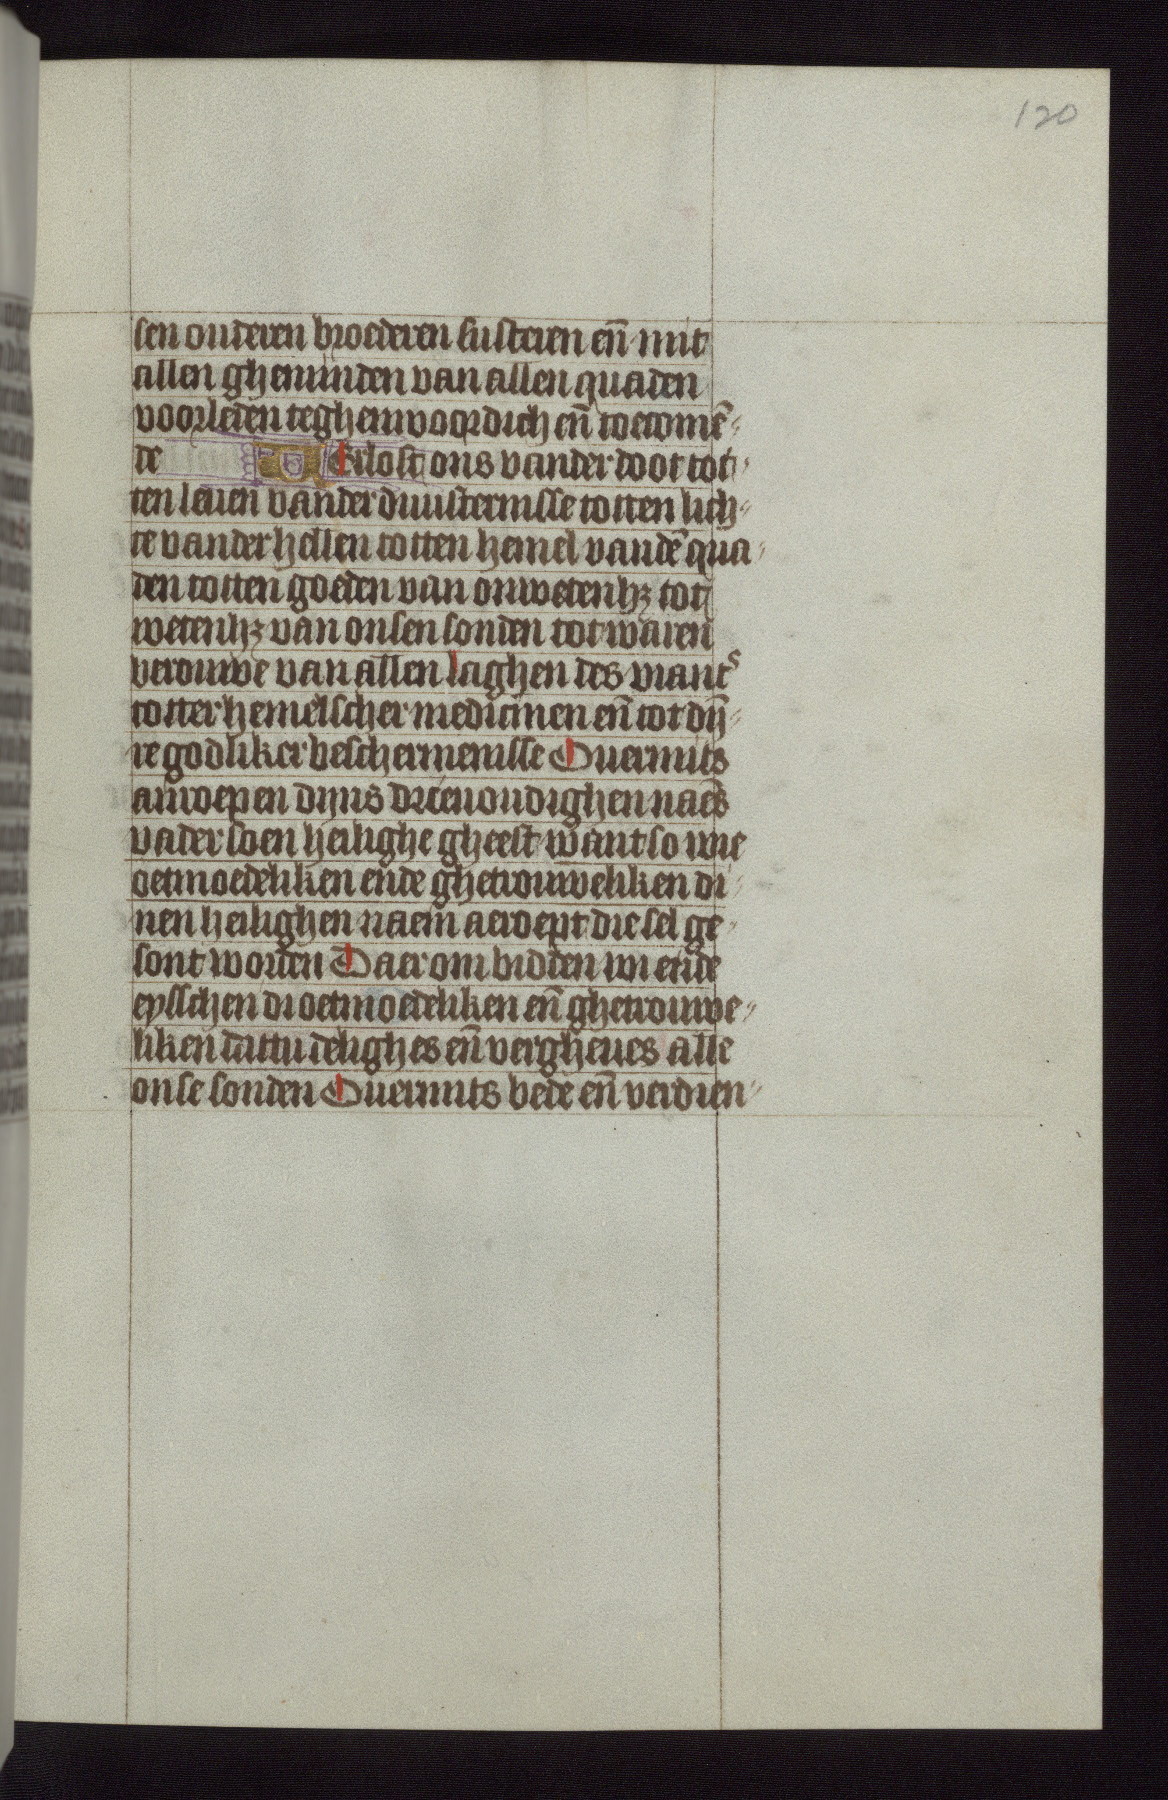 120
sen onderen broederen susteren en̄ mit
allen ghemīnden van allen quaden
voorleden teghenwoordich en̄ toecomē-
de Erlost ons vander doot tot-
ten leuen vander duusternisse totten lich-
te vander hellen totten hemel vandē qua-
den totten goeden van onwetenhz tot
wetenhz van onsen sonden tot waren
verouwe van allen laghen des viants
totter hemelscher medicinen en̄ tot dij-
re godliker beschermenisse Ouermits
anroepen dijns drieuoudighen naēs
vader soen heilighe gheest want so wie
oetmoedeliken ende ghetrouweliken di-
nen heilighen naem aenroept die sel ge-
sont worden Daer om bidden wi ende
eysschen di oetmoedeliken en̄ ghetrouwe-
liken dattu delighes en̄ vergheues alle
onse sonden Ouermits bede en̄ verdien-